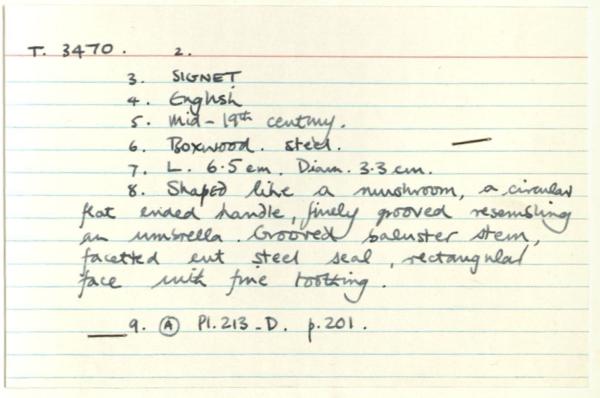 T. 3470. 2.
3. SIGNET
4. English
5. Mid-19th century.
6. Boxwood. steel.
7. L. 6.5 cm. Diam. 3.3 cm.
8. Shaped like a mushroom, a circular
flat ended handle, finely grooved resembling
an umbrella. Grooved baluster stem,
facetted cut steel seal, rectangular
face with fine toothing.
9. Ⓐ Pl. 213-D. p.201.